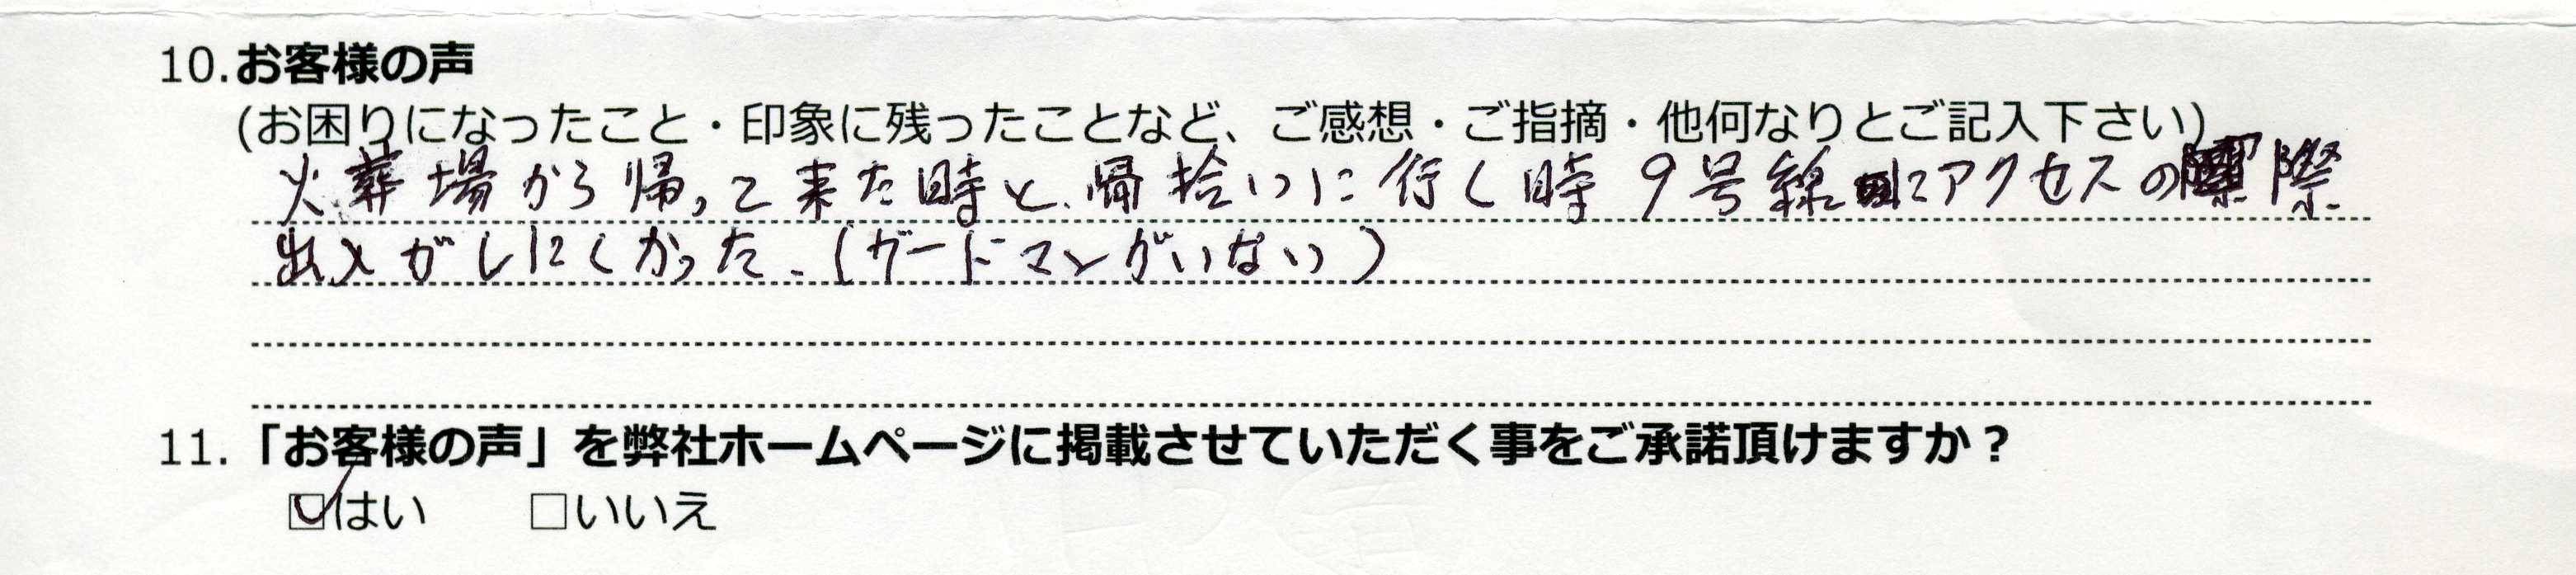 10.お客様の声
(お困りになったこと・印象に残ったことなど、ご感想・ご指摘・他何なりとご記入下さい)
火葬場から帰って来た時と、帰拾いに行く時 9号線にアクセスの際
出入がしにくかった。(ガードマンがいない)
11.「お客様の声」を弊社ホームページに掲載させていただく事をご承諾頂けますか？
☑はい □いいえ